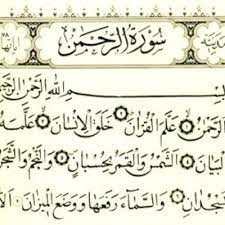 سُورَةُ الرَّحْمَٰنِ
بِسْمِ اللَّهِ الرَّحْمَٰنِ الرَّحِيمِ
الرَّحْمَٰنُ ۝ عَلَّمَ الْقُرْآنَ ۝ خَلَقَ الْإِنْسَانَ ۝ عَلَّمَهُ
الْبَيَانَ ۝ الشَّمْسُ وَالْقَمَرُ بِحُسْبَانٍ ۝ وَالنَّجْمُ وَالشَّجَرُ
يَسْجُدَانِ ۝ وَالسَّمَاءَ رَفَعَهَا وَوَضَعَ الْمِيزَانَ